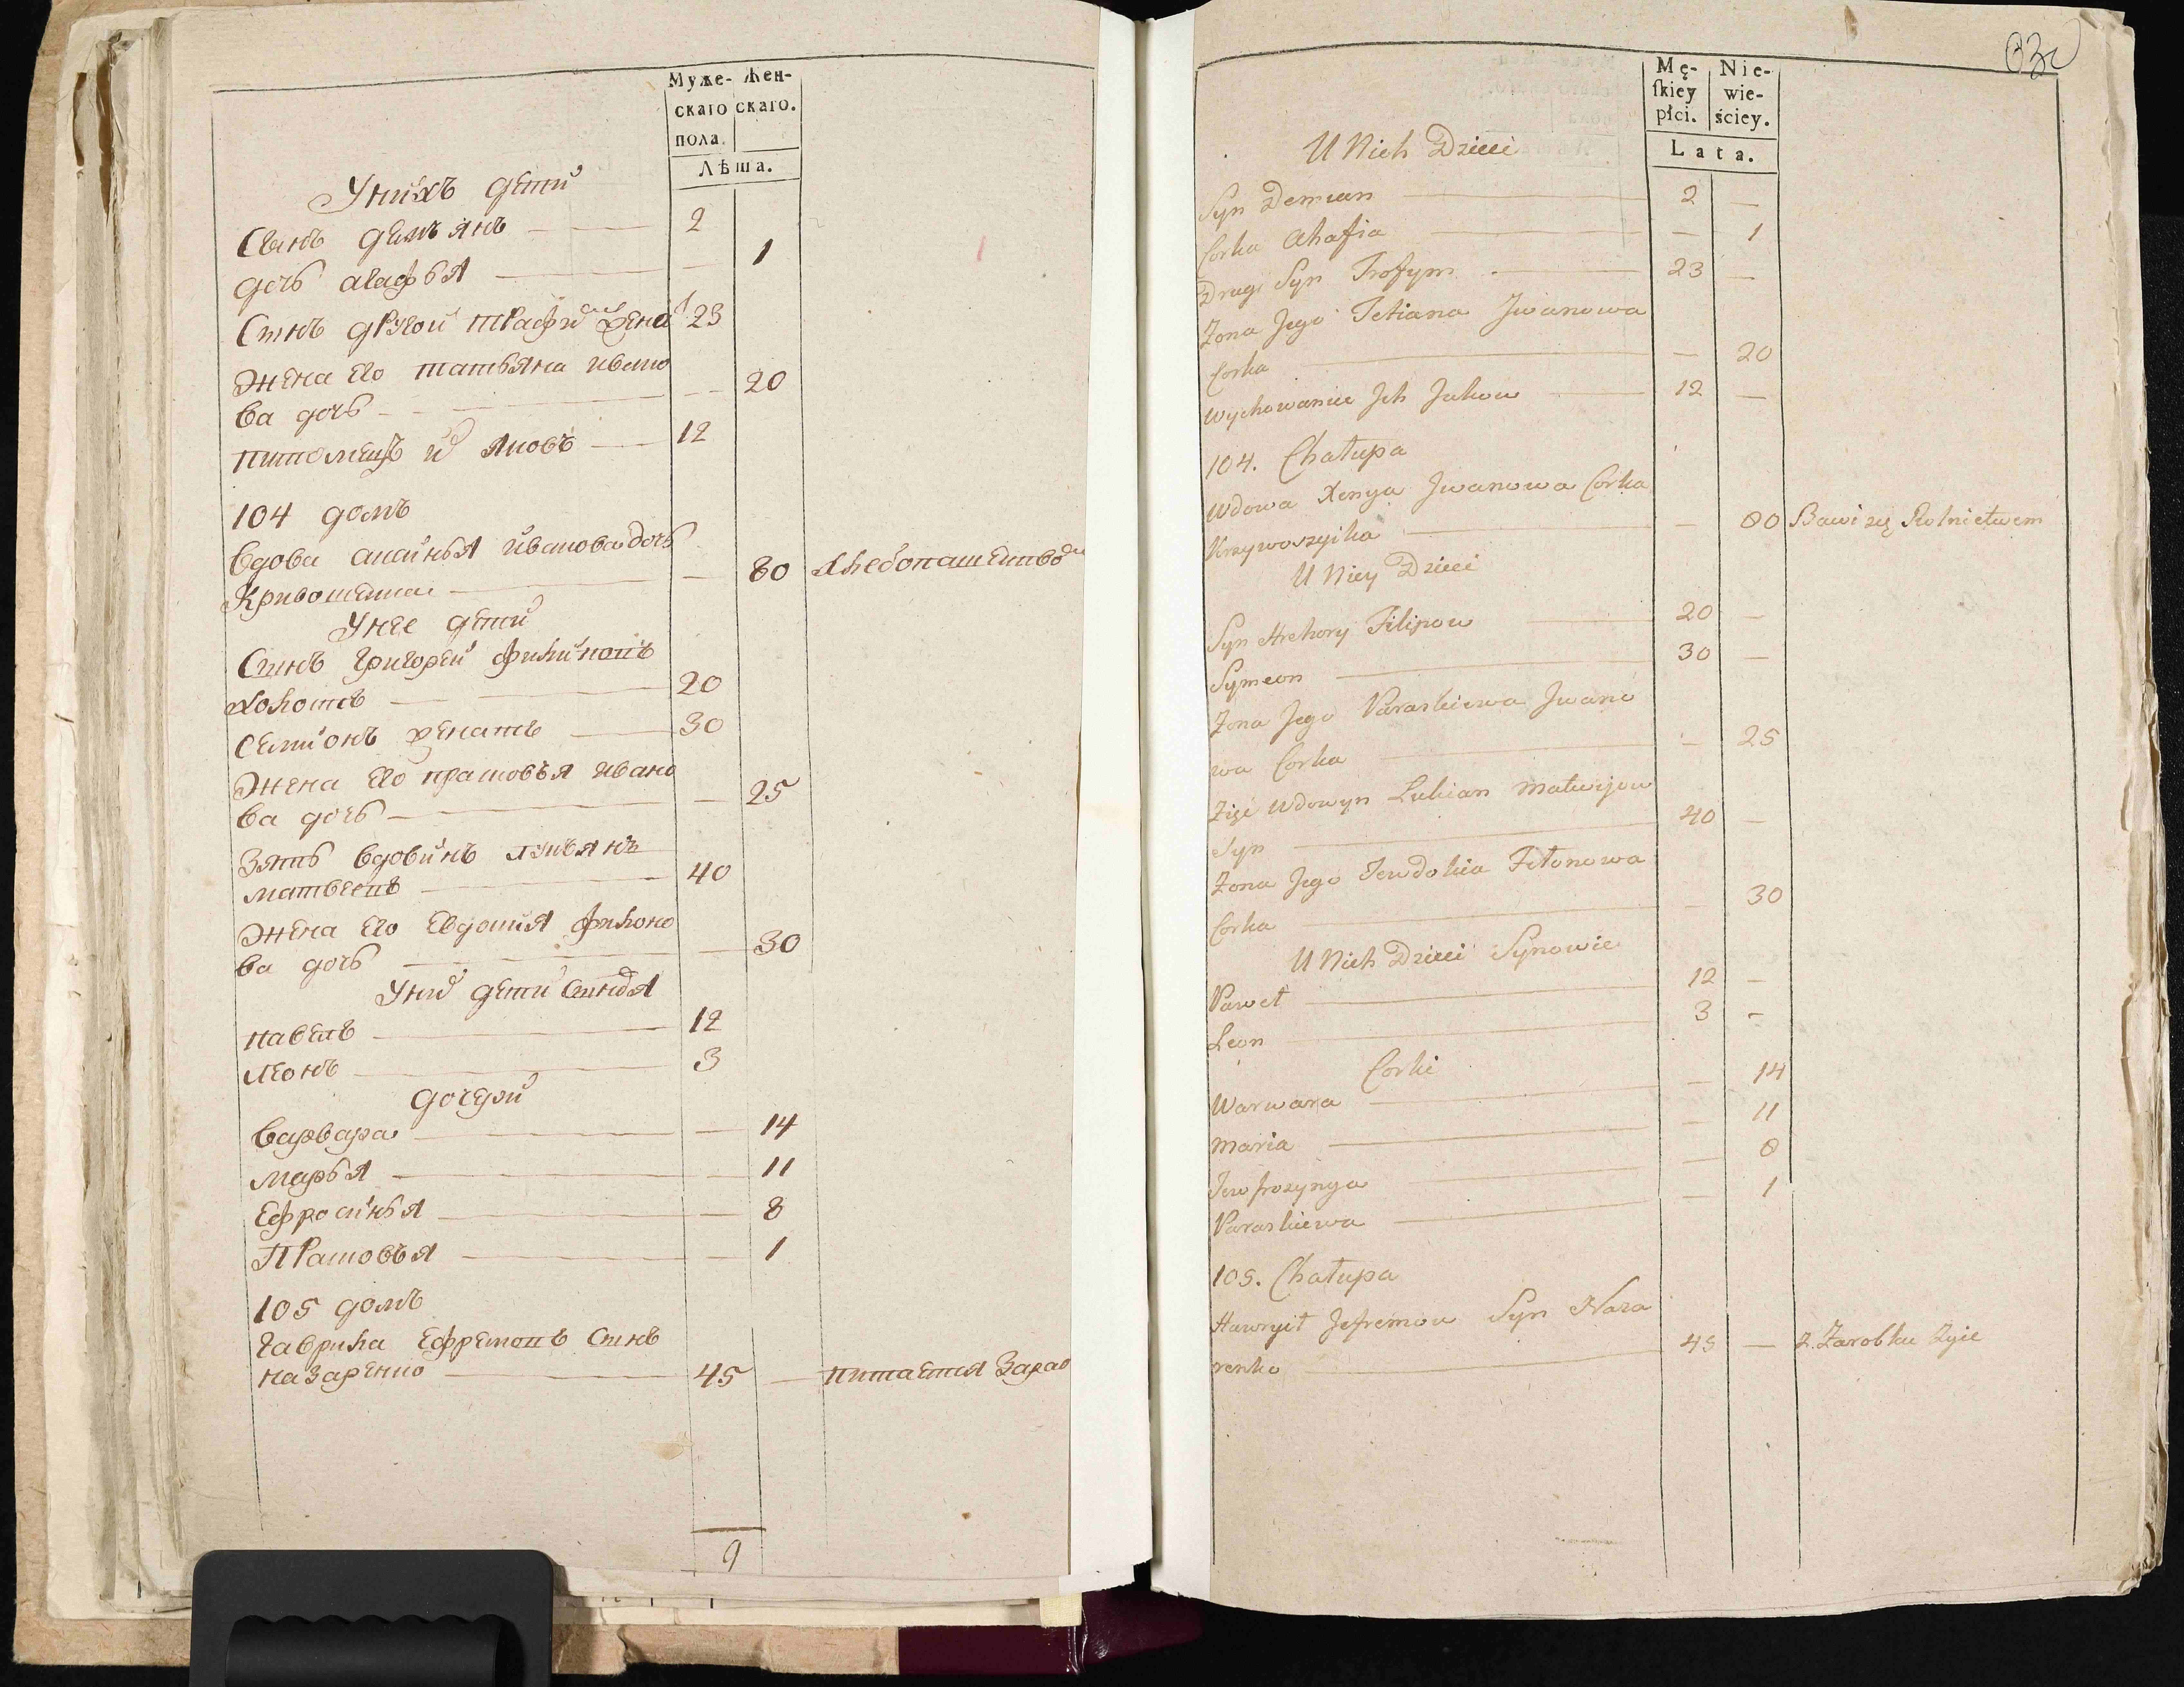 Муже-
скаго
пола.
Жен-
скаго.
Лѣта.
У нихъ дети
Сынъ демьянъ — 2
дочь агафья — — 1
Сынъ другой трафи женат 23
Жена его татьяна ивано
ва дочь — — 20
питомецъ и Яковъ — 12
104 домъ
Вдова аксинья иванова дочь
Кривошеика — — 80 хлебопашеством
У нее дети
Сынъ григорей филиповъ
холостъ — 20
Семионъ женатъ — 30
Жена его прасковья ивано
ва дочь — — 25
Зять вдовинъ лукьянъ
матвеевъ — 40
Жена его Евдокия филоно
ва дочь — — 30
У них дети Сыновья
павелъ — 12
леонъ — 3
дочери
варвара — — 14
марья — — 11
Ефросинья — — 8
Прасковья — — 1
105 домъ
гаврила Ефремовъ Сынъ
назаренко — 45 — питается Зарабо
9
Mę-
skiey
płci.
Nie-
wie-
ściey.
Lata.
U Nich Dzieci
Syn Demian — 2 —
Corka Ahafia — — 1
Drugi Syn Trofym — 23 —
Zona Jego Tetiana Jwanowa
Corka — — 20
Wychowaniec Jch Jakow — 12 —
104. Chałupa
Wdowa Xenya Jwanowa Corka
Krzywoszyika — — 80 Bawi się Rolnictwem
U Niey Dzieci
Syn Hrehory Filipow — 20 —
Symeon — 30 —
Zona Jego Paraskiewa Jwano
wa Corka — — 25
Zięć Wdowyn Lukian Matwijow
Syn — 40 —
Zona Jego Jewdokia Filonowa
Corka — — 30
U Nich Dzieci Synowie
Paweł — 12 —
Leon — 3 —
Corki
Warwara — — 14
Maria — — 11
Jewfrozynya — — 8
Paraskiewa — — 1
105. Chałupa
Hawryił Jefremow Syn Naza
renko — 45 — z Zarobku żyie